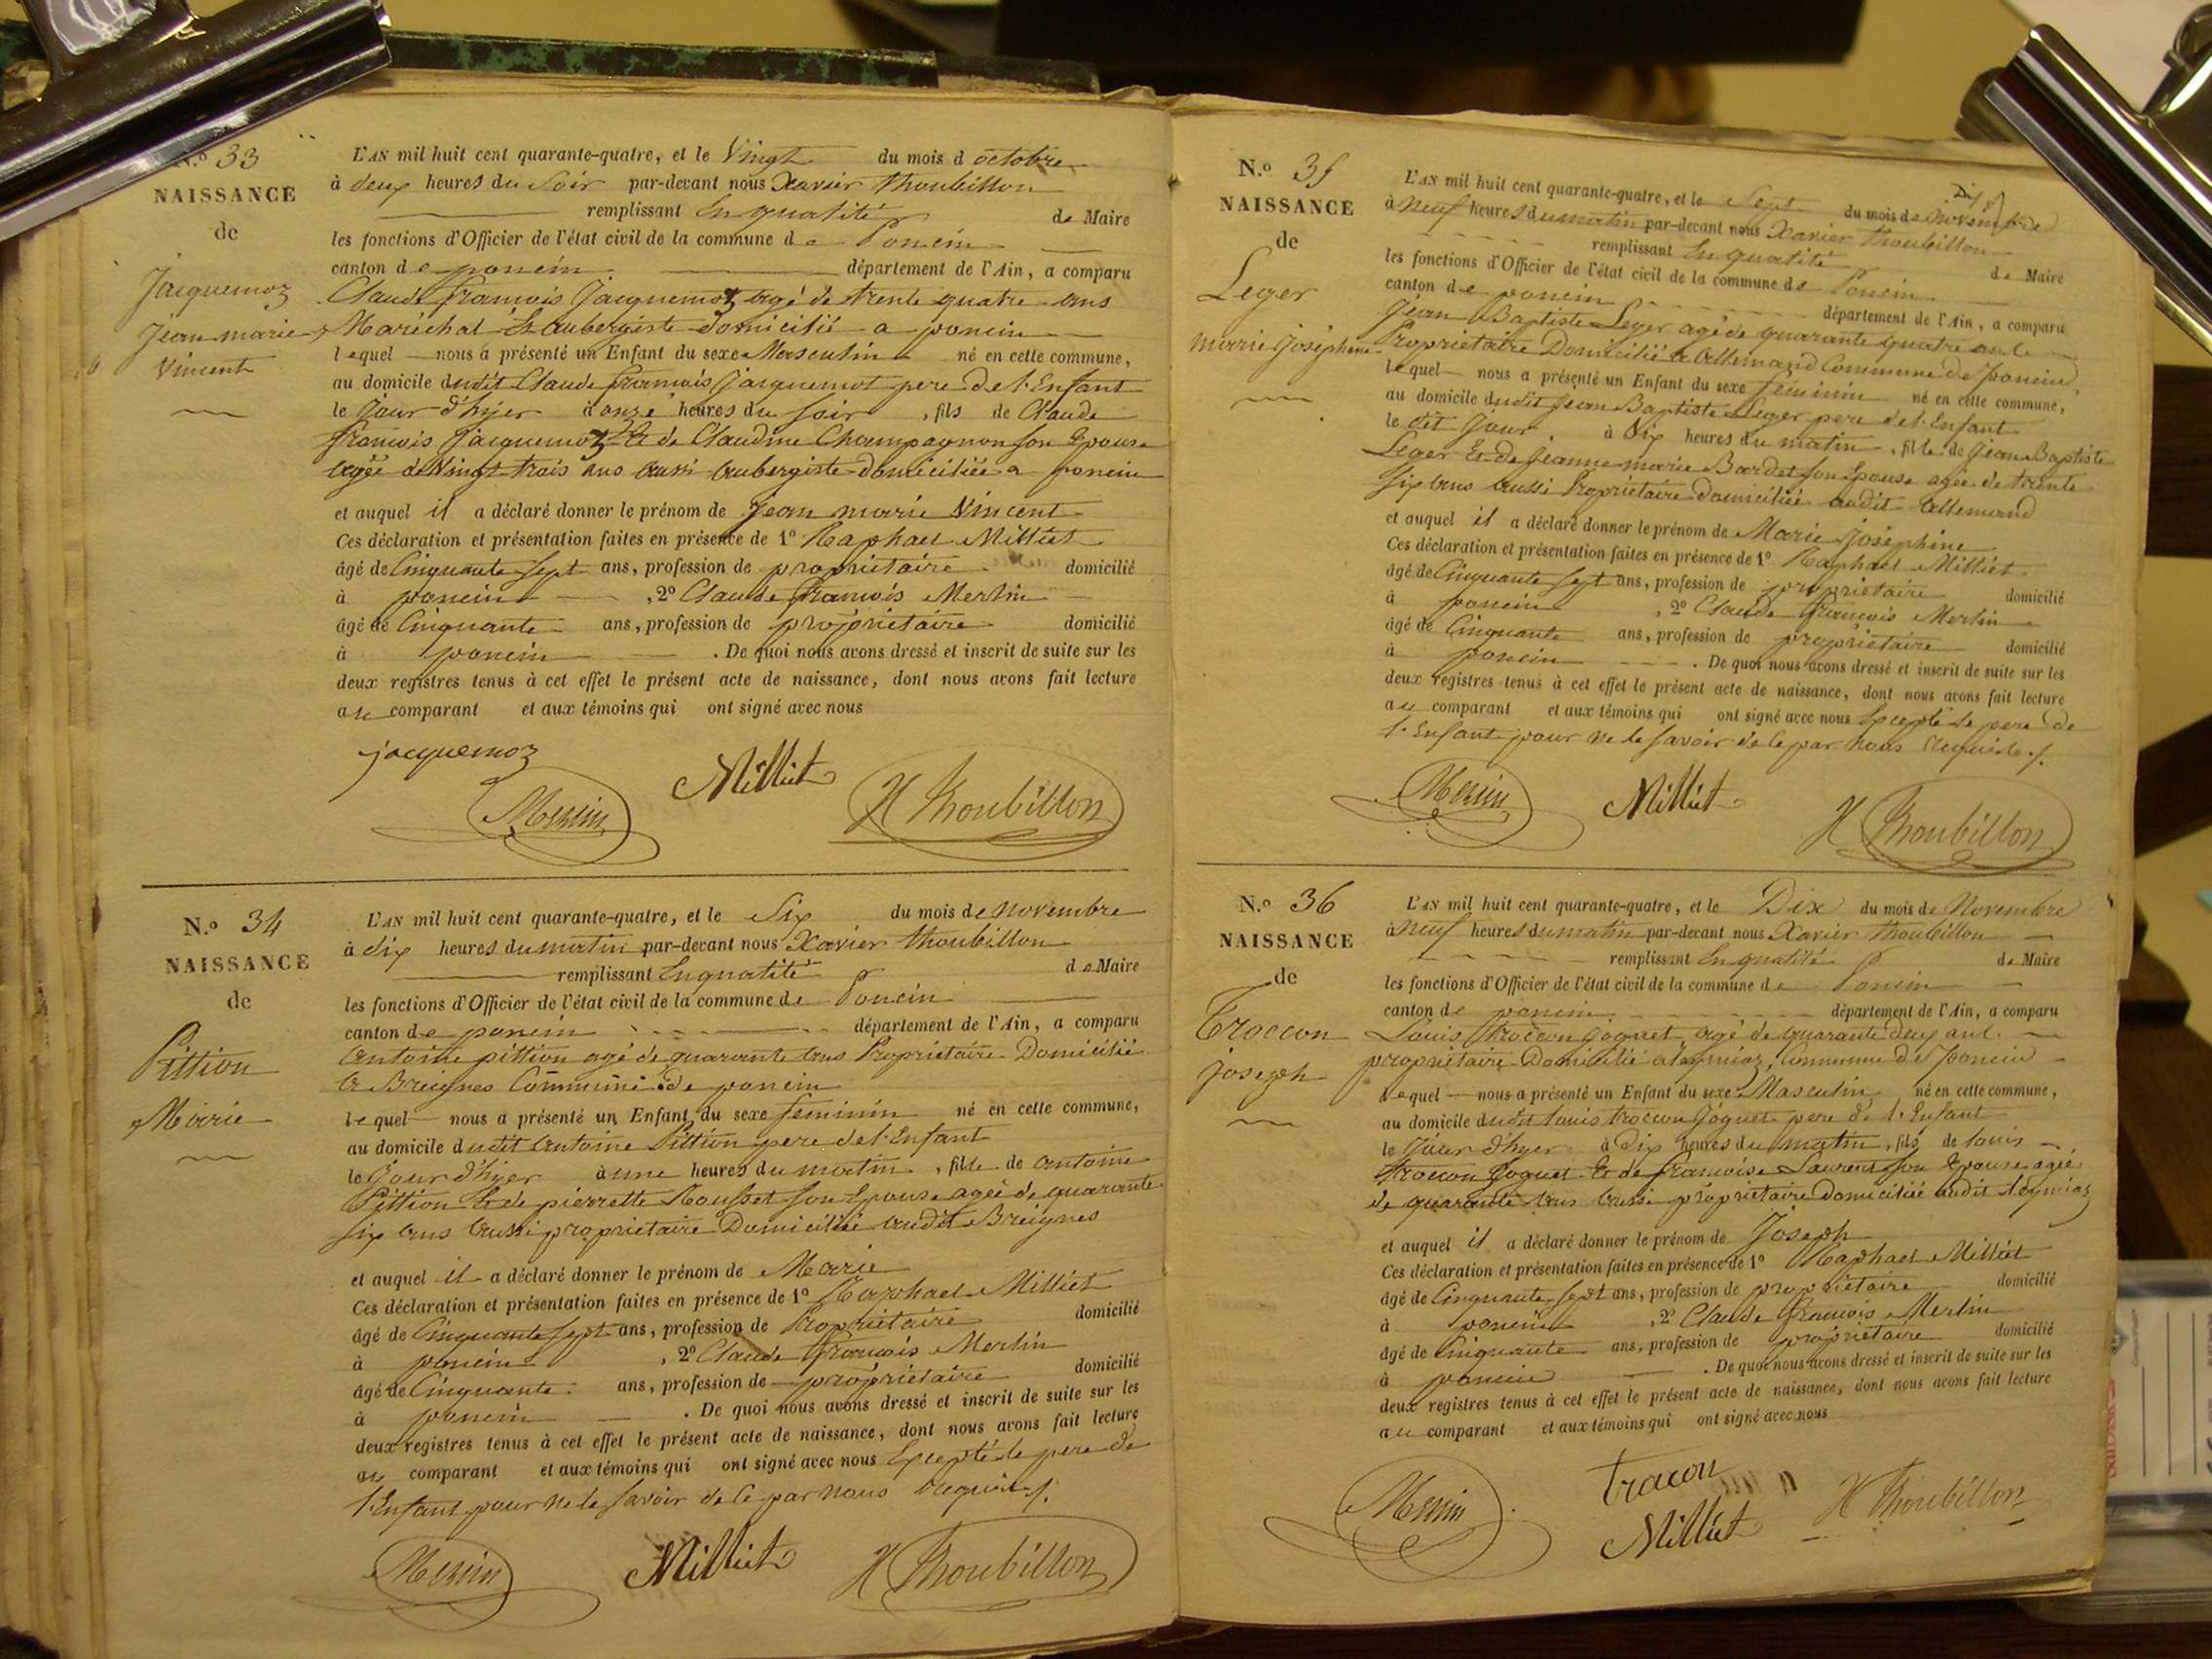 N.º 33
NAISSANCE
de
Jacquemoz
Jean marie
Vincent
L'AN mil huit cent quarante-quatre, et le Vingt du mois d octobre
à deux heures du Soir par-devant nous Xavier Thoubillon
remplissant En qualité de Maire
les fonctions d'Officier de l'état civil de la commune de Poncin
canton de poncin département de l'Ain, a comparu
Claude françois Jacquemoz agé de trente quatre ans
Maréchal & aubergiste domicilié a poncin
lequel nous a présenté un Enfant du sexe Masculin né en cette commune,
au domicile dudit Claude françois Jacquemot pere de l'Enfant
le Jour d'hyer à onze heures du soir, fils de Claude
françois Jacquemoz Et de Claudine Champagnon son Epouse
agée de Vingt trois ans aussi aubergiste domiciliée a poncin
et auquel il a déclaré donner le prénom de Jean marie Vincent
Ces déclaration et présentation faites en présence de 1º Raphael Milliet
âgé de Cinquante Sept ans, profession de propriétaire domicilié
à poncin, 2º Claude françois Merlin
âgé de Cinquante ans, profession de propriétaire domicilié
à poncin. De quoi nous avons dressé et inscrit de suite sur les
deux registres tenus à cet effet le présent acte de naissance, dont nous avons fait lecture
au comparant et aux témoins qui ont signé avec nous
jacquemoz
Merlin Milliet X Thoubillon
N.º 34
NAISSANCE
de
Pittion
Marie
L'AN mil huit cent quarante-quatre, et le Six du mois de Novembre
à dix heures du matin par-devant nous Xavier Thoubillon
remplissant En qualité de Maire
les fonctions d'Officier de l'état civil de la commune de Poncin
canton de poncin département de l'Ain, a comparu
Antoine pittion agé de quarante ans Propriétaire Domicilié
a Breignes Commune de poncin
lequel nous a présenté un Enfant du sexe feminin né en cette commune,
au domicile dudit Antoine Pittion pere de l'Enfant
le Jour d'hyer à une heures du matin, fille de Antoine
Pittion Et de pierrette Rousset son Epouse agée de quarante
six ans aussi propriétaire Domiciliée audit Breignes
et auquel il a déclaré donner le prénom de Marie
Ces déclaration et présentation faites en présence de 1º Raphael Milliet
âgé de Cinquante Sept ans, profession de Propriétaire domicilié
à poncin, 2º Claude François Merlin
âgé de Cinquante ans, profession de propriétaire domicilié
à poncin. De quoi nous avons dressé et inscrit de suite sur les
deux registres tenus à cet effet le présent acte de naissance, dont nous avons fait lecture
au comparant et aux témoins qui ont signé avec nous Excepté le pere de
l'Enfant pour ne le savoir de ce par nous requis
Merlin Milliet X Thoubillon
N.º 35
NAISSANCE
de
Leger
marie Joséphine
L'AN mil huit cent quarante-quatre, et le Sept du mois de Novembre
à Neuf heures du matin par-devant nous Xavier Thoubillon
remplissant En qualité de Maire
les fonctions d'Officier de l'état civil de la commune de Poncin
canton de poncin département de l'Ain, a comparu
Jean Baptiste Leger agé de quarante quatre ans
Propriétaire Domicilié a Allemand Commune de poncin
lequel nous a présenté un Enfant du sexe féminin né en cette commune,
au domicile dudit Jean Baptiste Leger pere de l'Enfant
le dit Jour à Six heures du matin, fille de Jean Baptiste
Leger Et de Jeanne marie Bardet son Epouse agée de trente
six ans aussi Propriétaire domiciliée audit Allemand
et auquel il a déclaré donner le prénom de Marie Joséphine
Ces déclaration et présentation faites en présence de 1º Raphael Milliet
âgé de Cinquante Sept ans, profession de propriétaire domicilié
à poncin, 2º Claude françois Merlin
âgé de Cinquante ans, profession de propriétaire domicilié
à poncin. De quoi nous avons dressé et inscrit de suite sur les
deux registres tenus à cet effet le présent acte de naissance, dont nous avons fait lecture
au comparant et aux témoins qui ont signé avec nous Excepté le pere de
l'Enfant pour ne le savoir de ce par nous requis
Merlin Milliet X Thoubillon
N.º 36
NAISSANCE
de
Troccon
joseph
L'AN mil huit cent quarante-quatre, et le Dix du mois de Novembre
à Neuf heures du matin par-devant nous Xavier Thoubillon
remplissant En qualité de Maire
les fonctions d'Officier de l'état civil de la commune de Poncin
canton de poncin département de l'Ain, a comparu
Louis Troccon Joguet agé de quarante deux ans
propriétaire Domicilié a Leymiaz, Commune de poncin
lequel nous a présenté un Enfant du sexe Masculin né en cette commune,
au domicile dudit Louis trocon Joguet pere de l'Enfant
le Jour d'hyer à Dix heures du matin, fils de Louis
Trocon Joguet Et de françoise Laurent son Epouse agée
de quarante ans aussi propriétaire Domiciliée audit Leymiaz
et auquel il a déclaré donner le prénom de Joseph
Ces déclaration et présentation faites en présence de 1º Raphael Milliet
âgé de Cinquante Sept ans, profession de propriétaire domicilié
à poncin, 2º Claude François Merlin
âgé de Cinquante ans, profession de propriétaire domicilié
à poncin. De quoi nous avons dressé et inscrit de suite sur les
deux registres tenus à cet effet le présent acte de naissance, dont nous avons fait lecture
au comparant et aux témoins qui ont signé avec nous
Merlin Tracon
Milliet X Thoubillon